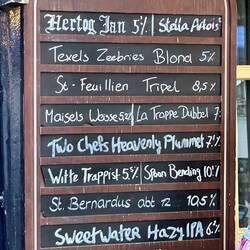 Hertog Jan 5% | Stella Artois
Texels Zeebries Blond 5%
St. Feuillien Tripel 8,5%
Maisels Weisse 5% | La Trappe Dubbel 7
Two Chefs Heavenly Plummet 7%
Witte Trappist 5% | Span Bending 10%
St. Bernardus abt 12 10,5%
SweetWater Hazy IPA 6%